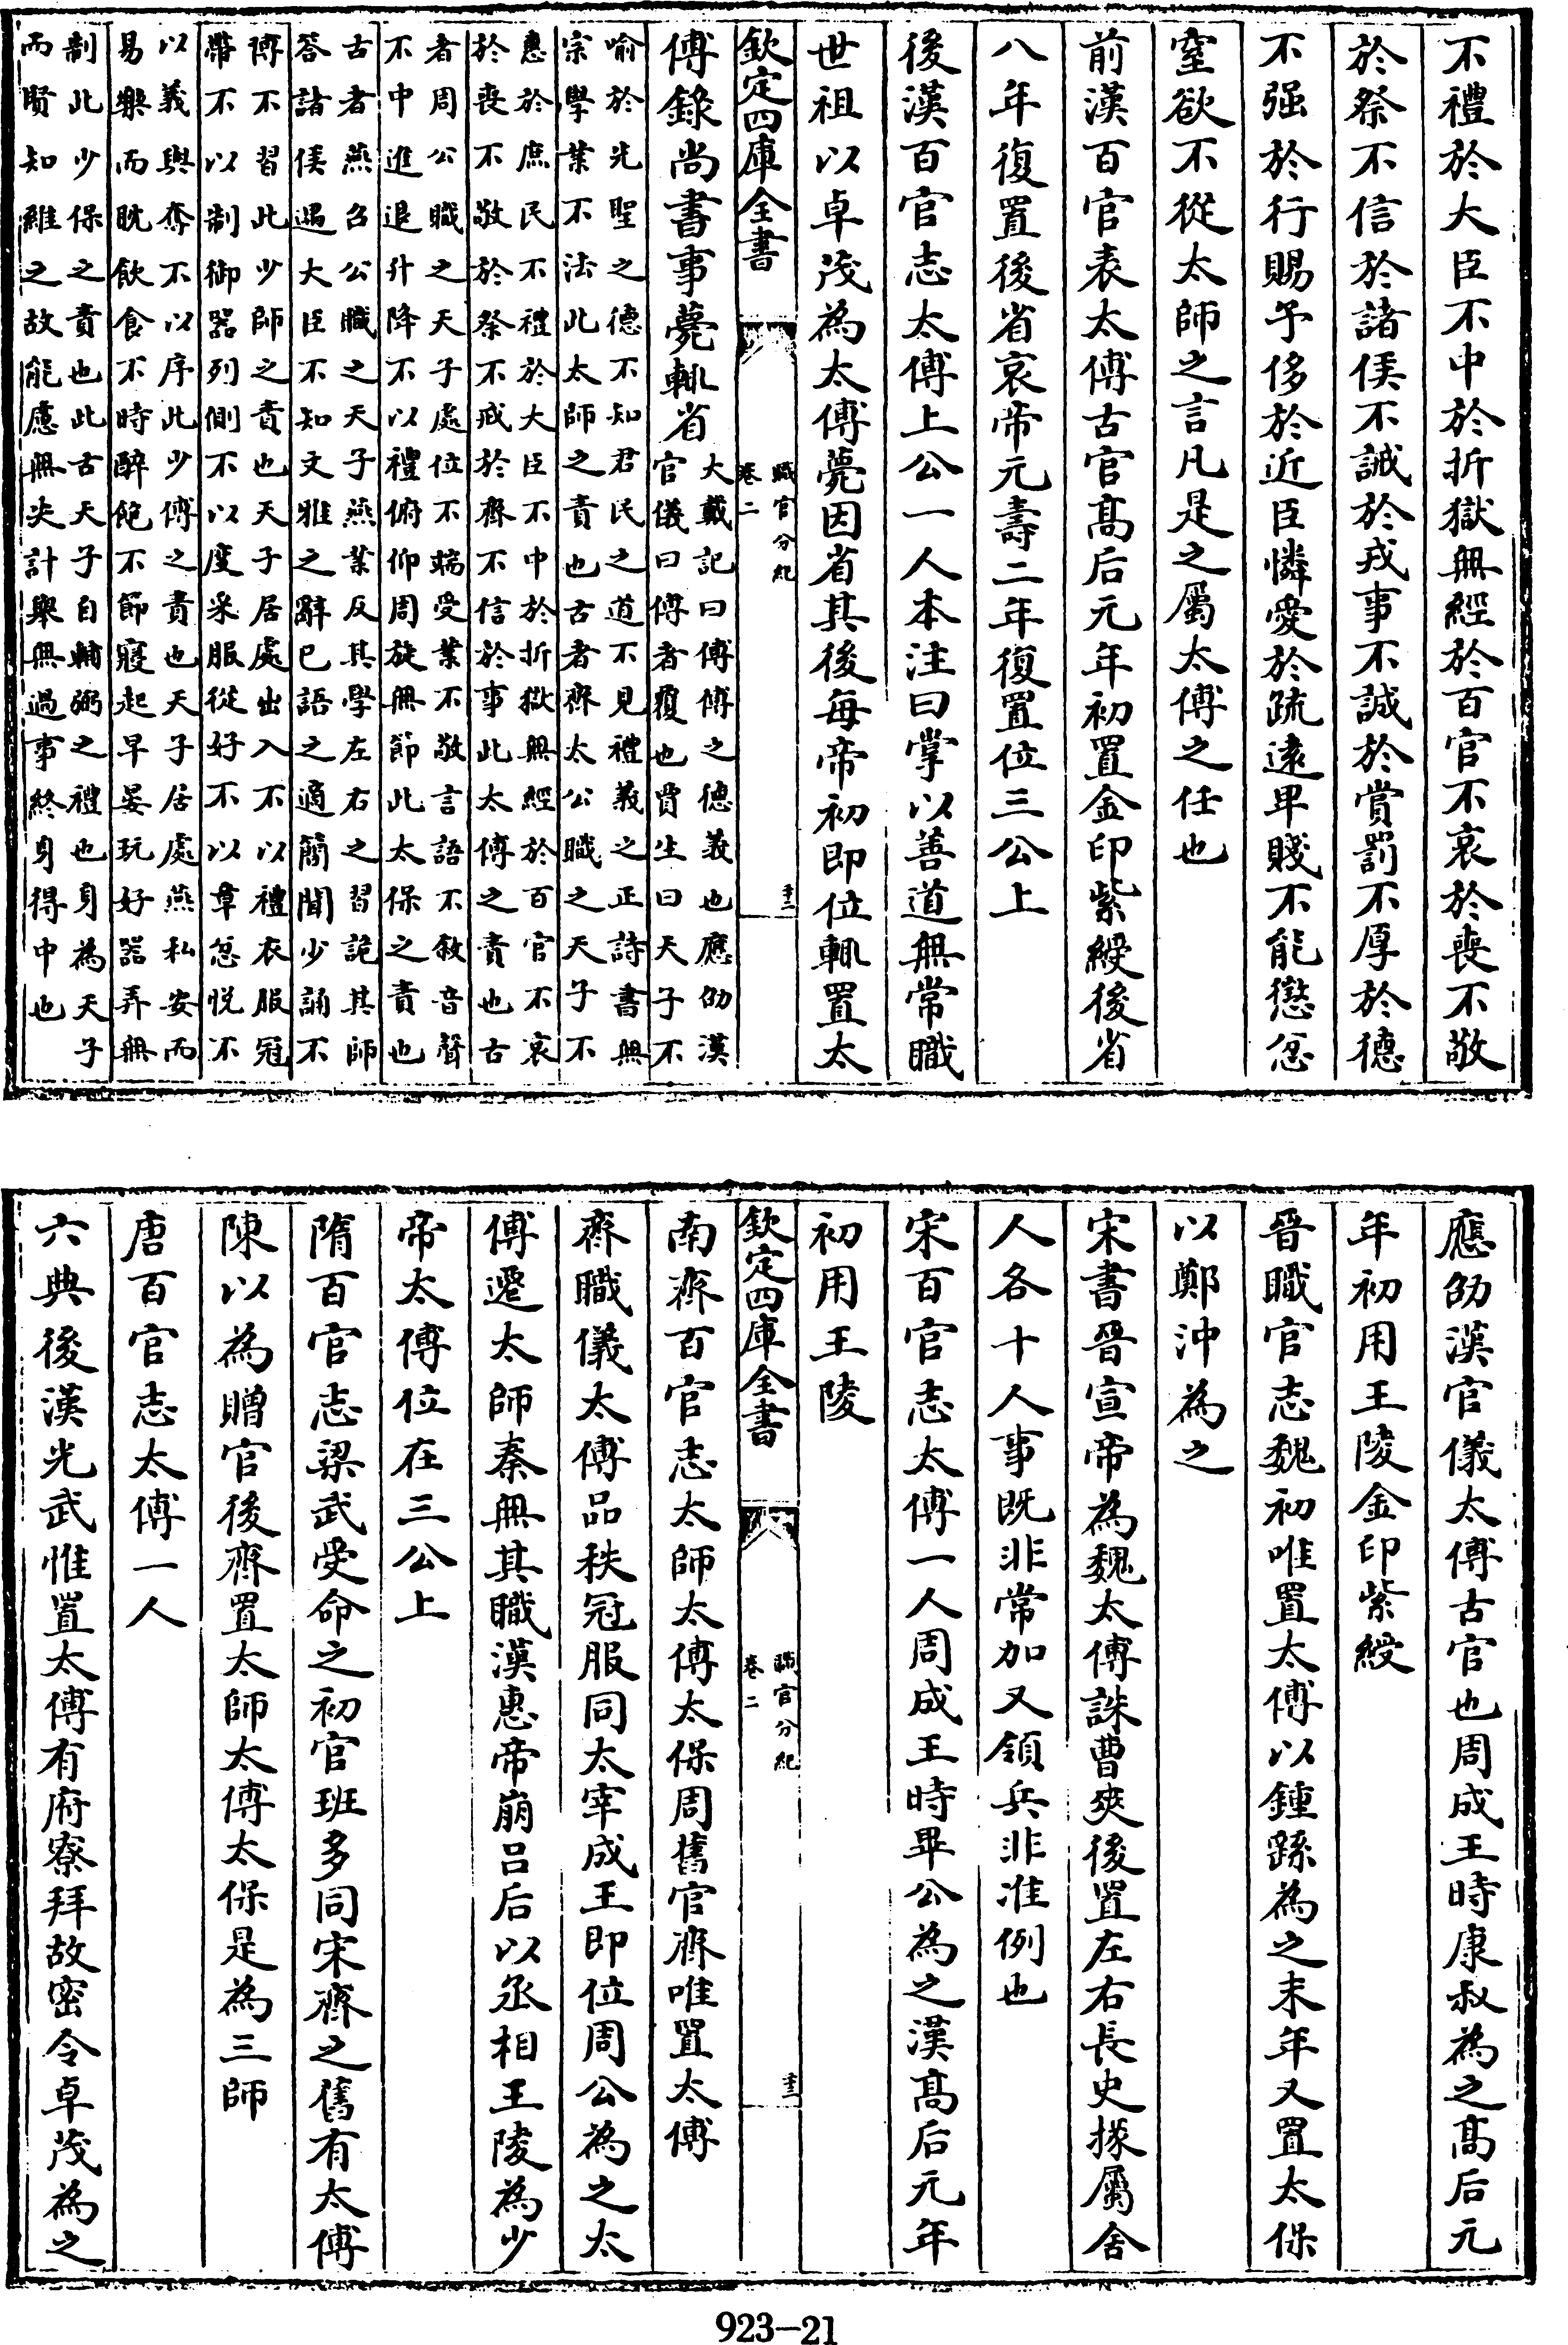 不禮於大臣不中於折獄無經於百官不哀於喪不敬
於祭不信於諸侯不誠於戎事不誠於賞罰不厚於德
不强於行賜予侈於近臣憐愛於疏逺卑賤不能懲忿
窒欲不從太師之言凡是之屬太傅之任也
前漢百官表太傅古官髙后元年初置金印紫綬後省
八年復置後省哀帝元壽二年復置位三公上
後漢百官志太傅上公一人本注曰掌以善道無常職
世祖以卓茂為太傅薨因省其後每帝初即位輒置太
欽定四庫全書
職官分紀
卷二
傅錄尚書事薨輒省
大戴記曰傅傅之德義也應劭漢
官儀曰傅者覆也賈生曰天子不
喻於先聖之德不知君民之道不見禮義之正詩書無
宗學業不法此太師之責也古者齊太公職之天子不
惠於庶民不禮於大臣不中於折獄無經於百官不哀
於喪不敬於祭不戒於齊不信於事此太傅之責也古
者周公職之天子處位不端受業不敬言語不敘音聲
不中進退升降不以禮俯仰周旋無節此太保之責也
古者燕召公職之天子燕業反其學左右之習詭其師
答諸侯遇大臣不知文雅之辭已語之適簡聞少誦不
傅不習此少師之責也天子居處出入不以禮衣服冠
帶不以制御器列側不以度采服從好不以章忿悦不
以義與奪不以序此少傅之責也天子居處燕私安而
易樂而耽飲食不時醉飽不節寢起早晏玩好器弄無
制此少保之責也此古天子自輔弼之禮也身為天子
而賢知維之故能慮無失計舉無過事終身得中也
應劭漢官儀太傅古官也周成王時康叔為之髙后元
年初用王陵金印紫綬
晉職官志魏初唯置太傅以鍾繇為之末年又置太保
以鄭沖為之
宋書晉宣帝為魏太傅誅曹爽後置左右長史掾屬舍
人各十人事既非常加又領兵非准例也
宋百官志太傅一人周成王時畢公為之漢髙后元年
初用王陵
欽定四庫全書
職官分紀
卷二
南齊百官志太師太傅太保周舊官齊唯置太傅
齊職儀太傅品秩冠服同太宰成王即位周公為之太
傅遷太師秦無其職漢惠帝崩吕后以丞相王陵為少
帝太傅位在三公上
隋百官志梁武受命之初官班多同宋齊之舊有太傅
陳以為贈官後齊置太師太傅太保是為三師
唐百官志太傅一人
六典後漢光武惟置太傅有府寮拜故密令卓茂為之
923-21